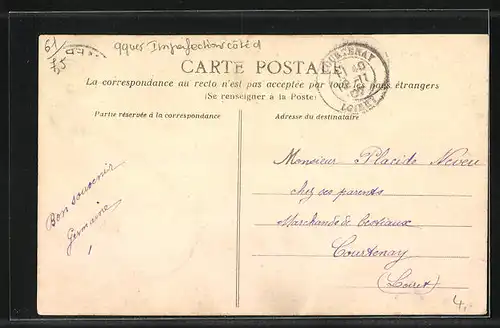 61
£5
qques Imperfections côté d
CARTE POSTALE
La correspondance au recto n'est pas acceptée par tous les pays étrangers
(Se renseigner à la Poste)
COURTENAY
LOIRET
Partie réservée à la correspondance
Adresse du destinataire
Bon souvenir
Germaine
Monsieur Placide Neveu
chez ses parents
Marchands de bestiaux
Courtenay
(Loiret)
4.